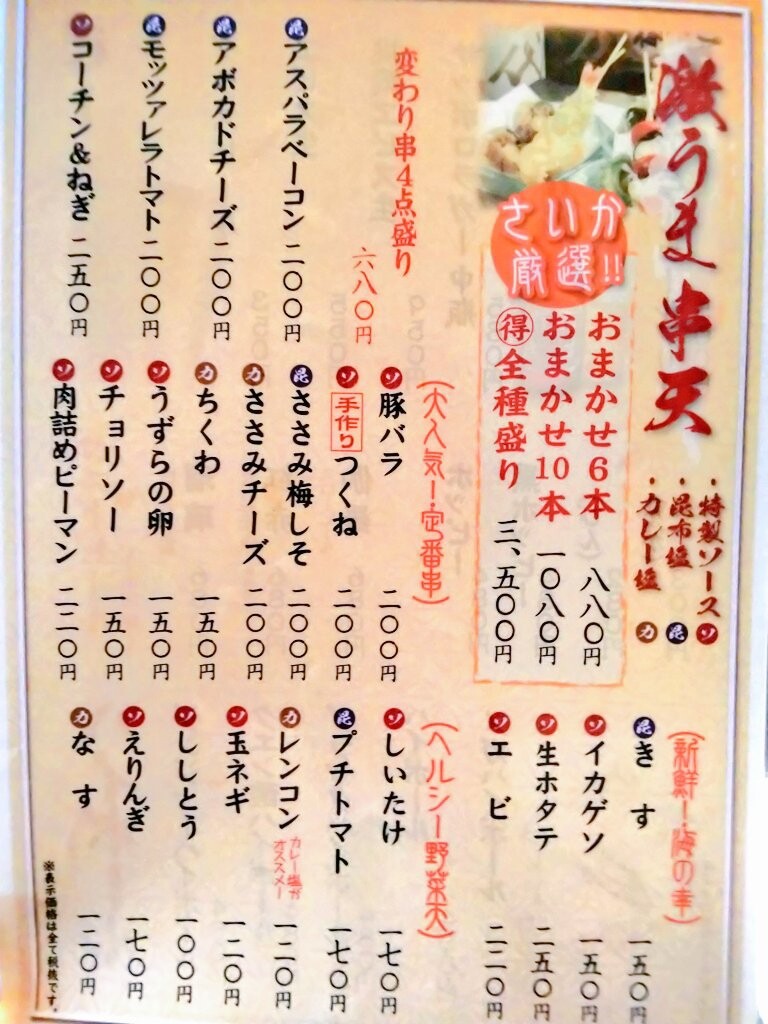 激うま串天
・特製ソース ソ
・昆布塩 昆
・カレー塩 カ
さいか
厳選!!
おまかせ6本 八八〇円
おまかせ10本 一〇八〇円
得全種盛り 三、五〇〇円
(新鮮!海の幸)
昆 きす 一五〇円
ソ イカゲソ 一五〇円
ソ 生ホタテ 二五〇円
ソ エビ 二二〇円
(大人気!定番串)
ソ 豚バラ 二〇〇円
ソ 手作り つくね 二〇〇円
昆 ささみ梅しそ 二〇〇円
カ ささみチーズ 二〇〇円
カ ちくわ 一五〇円
ソ うずらの卵 一五〇円
ソ チョリソー 一五〇円
ソ 肉詰めピーマン 二二〇円
(ヘルシー野菜天)
ソ しいたけ 一七〇円
昆 プチトマト 一七〇円
カ レンコン カレー塩がオススメー 一二〇円
ソ 玉ネギ 一二〇円
ソ ししとう 一〇〇円
ソ えりんぎ 一七〇円
カ なす 一二〇円
変わり串4点盛り
六八〇円
昆 アスパラベーコン 二〇〇円
昆 アボカドチーズ 二〇〇円
昆 モッツァレラトマト 二〇〇円
ソ コーチン&ねぎ 二五〇円
※表示価格は全て税抜です。